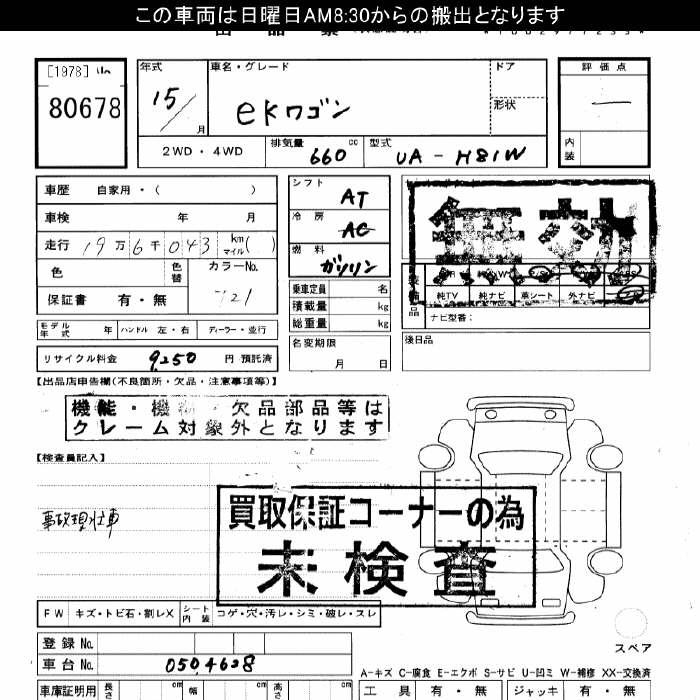 この車両は日曜日AM8:30からの搬出となります
[1978]
80678
年式
15／
月
車名・グレード
ekワゴン
ドア
形状
評価点
―
内装
2WD・4WD
排気量
660
cc
型式
UA-H81W
車歴 自家用・（ ）
車検 年 月
走行 19万6千043 km マイル（ ）
色
色替
カラーNo.
721
保証書 有・無
モデル年式 年
ハンドル 左・右
ディーラー・並行
リサイクル料金 9,250 円 預託済
シフト
AT
冷房
AC
燃料
ガソリン
乗車定員 名
積載量 kg
総重量 kg
名変期限
月 日
純TV
純ナビ
革シート
外ナビ
ナビ型番：
後日品
【出品店申告欄(不良箇所・欠品・注意事項等)】
機能・機 ・欠品部品等は
クレーム対象外となります
【検査員記入】
事故現状車
買取保証コーナーの為
未検査
FW キズ・トビ石・割レX
シート内装
コゲ・穴・汚レ・シミ・破レ・スレ
登録No.
車台No. 0504628
スペア
A-キズ C-腐食 E-エクボ S-サビ U-凹ミ W-補修 XX-交換済
車庫証明用
長さ
cm
幅
cm
高さ
cm
工具 有・無
ジャッキ 有・無